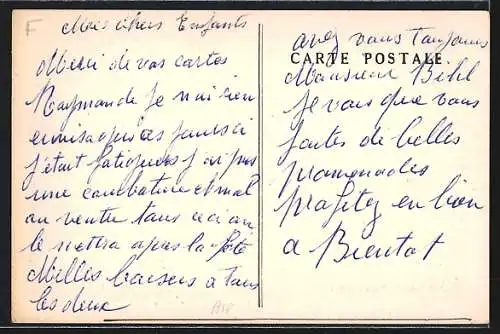 F
Mes chers Enfants
Merci de vos cartes
Raymonde je n'ai rien
envisagé ces jours ci
j'étais fatiguée j'ai pris
une courbature et mal
au ventre tous ceci on
le mettra après la fête
Milles baisers à tous
les deux
A18
avez vous toujours
CARTE POSTALE.
Monsieur Bihl
Je vois que vous
faites de belles
promenades
profitez en bien
a Bientot